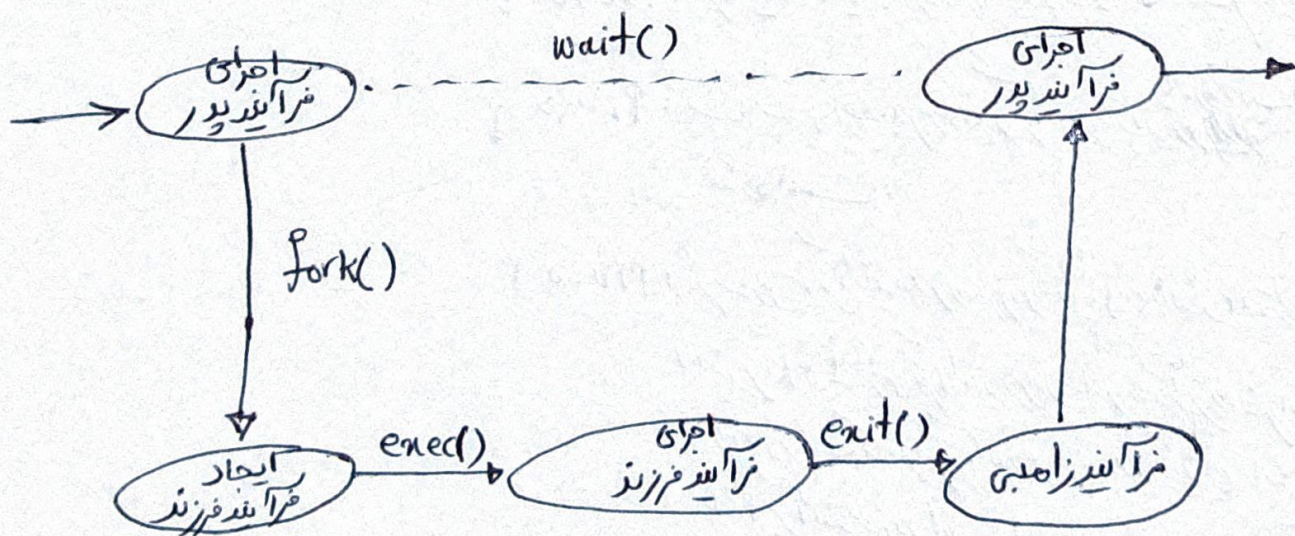 wait()
اجرای
فرآیند پدر
اجرای
فرآیند پدر
fork()
ایجاد
فرآیند فرزند
exec()
اجرای
فرآیند فرزند
exit()
فرآیند زامبی